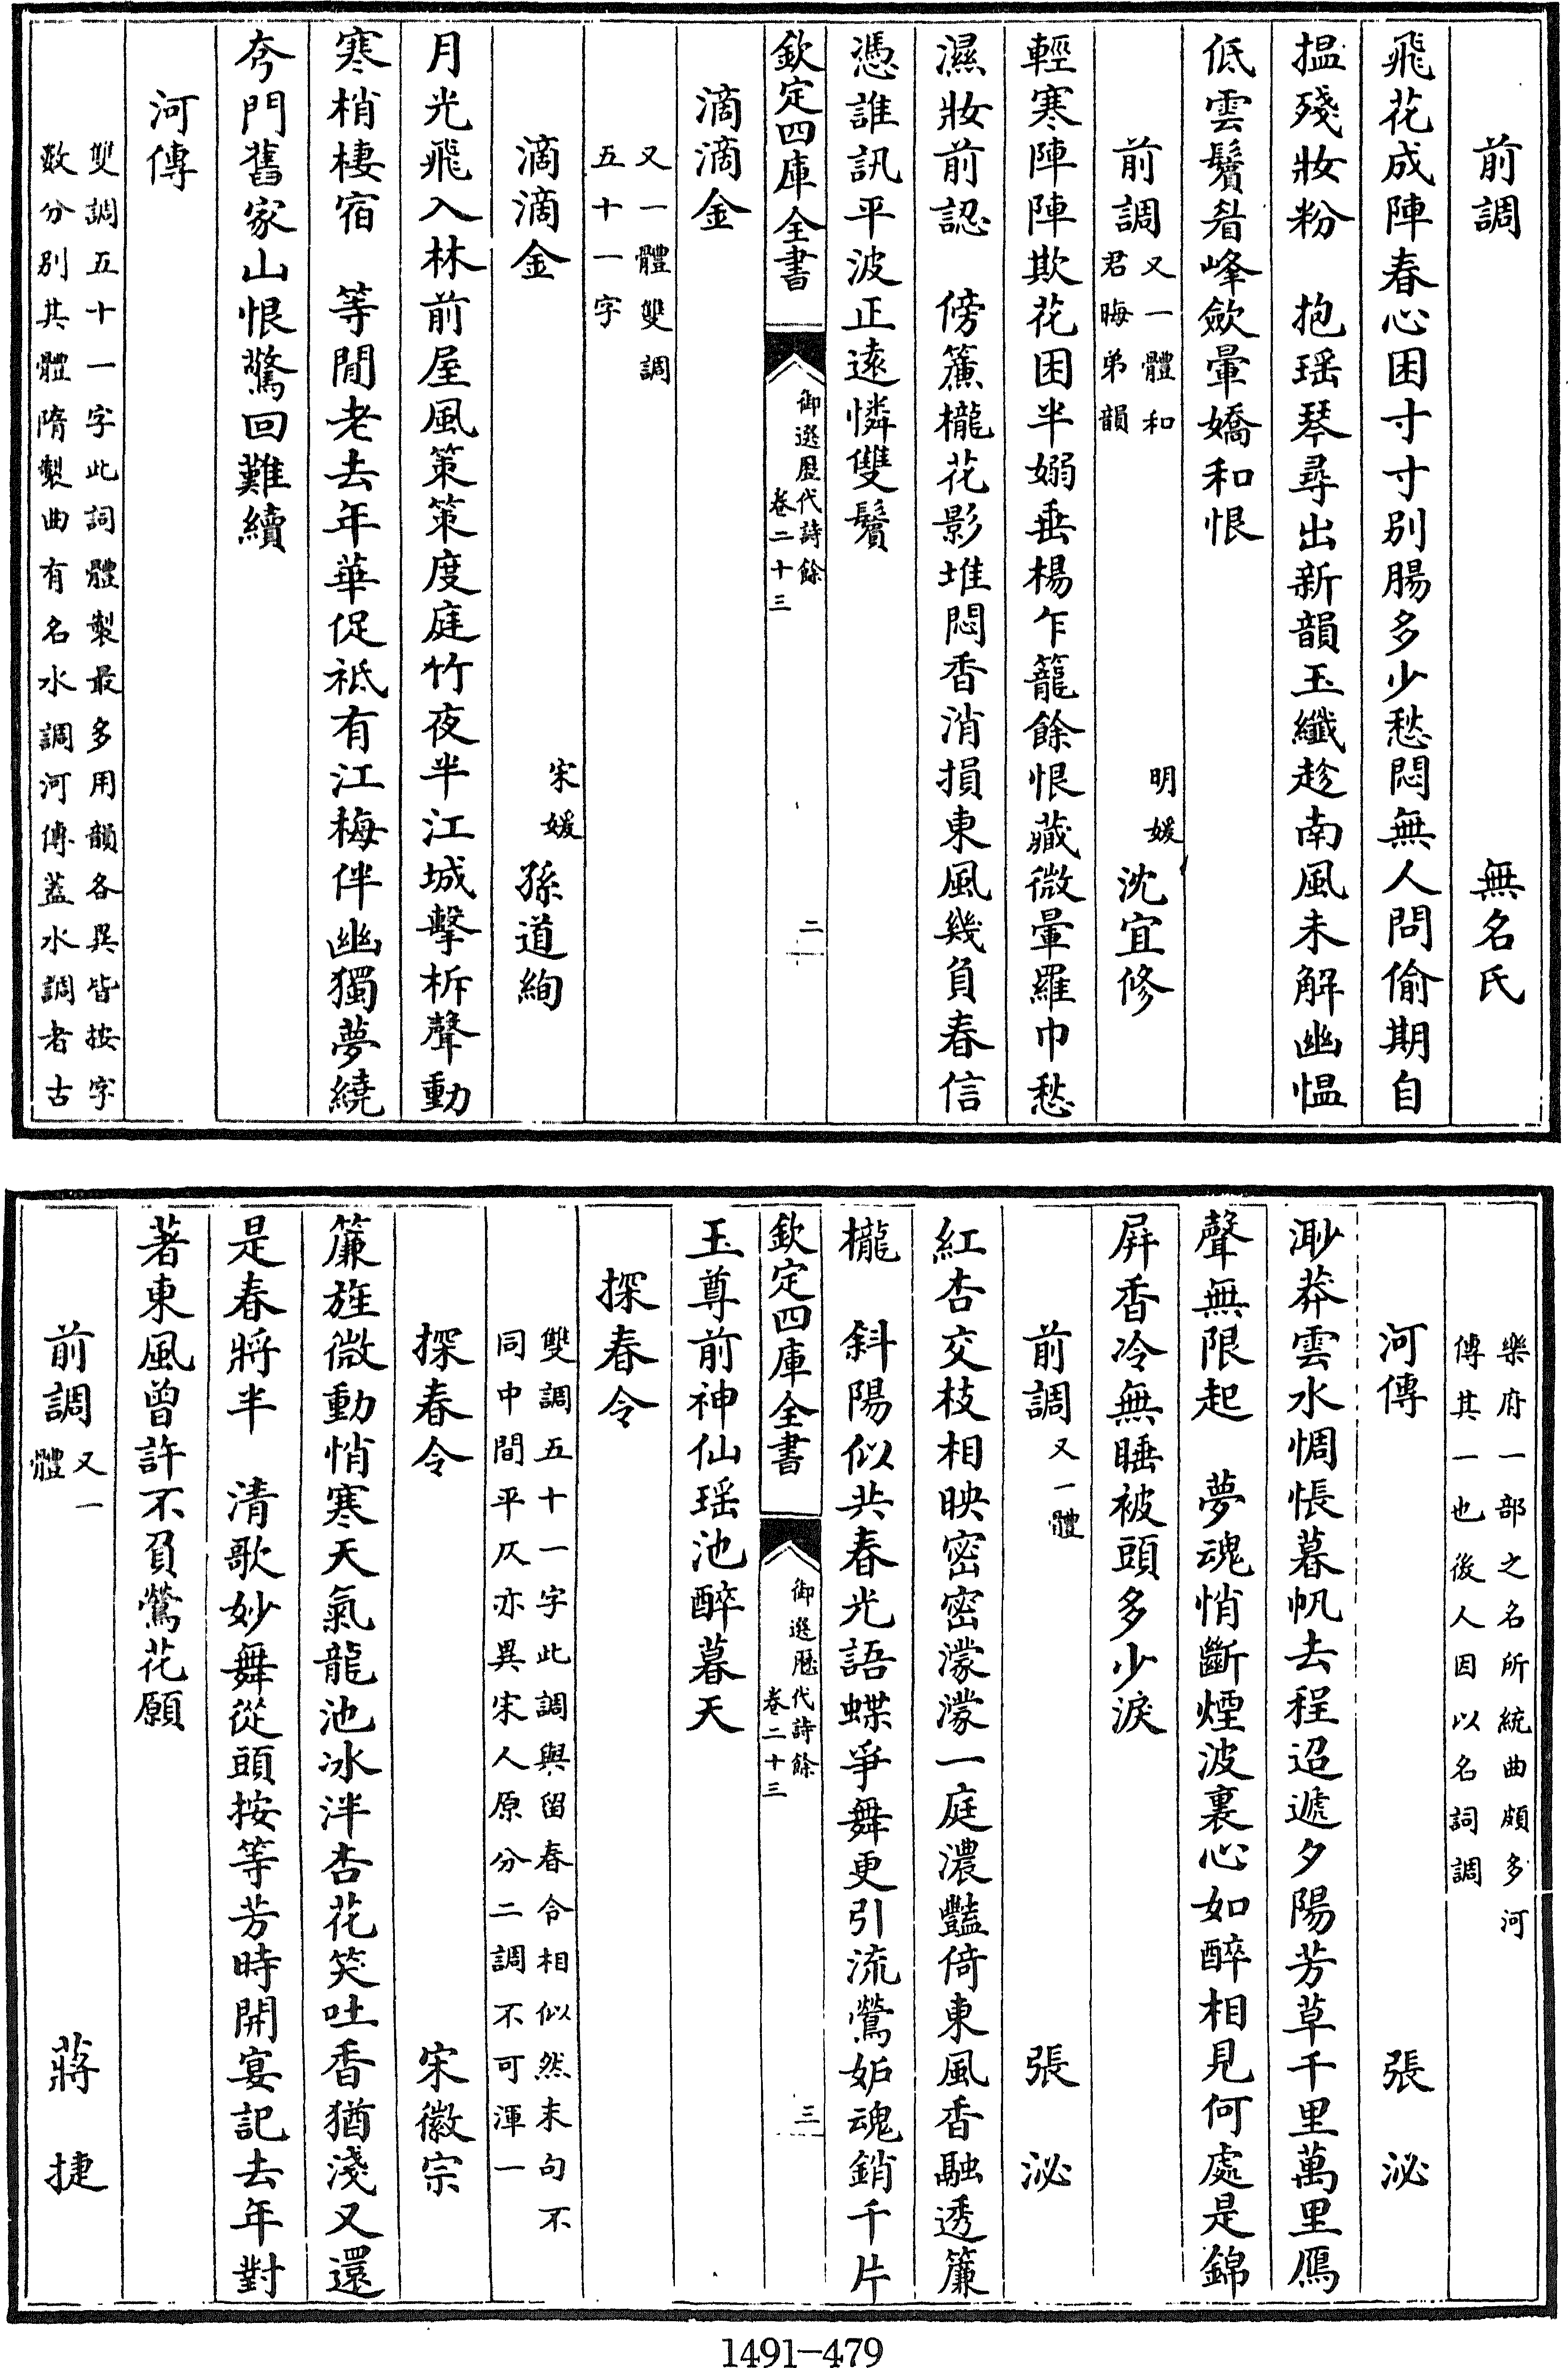 前調　無名氏
飛花成陣春心困寸寸別腸多少愁悶無人問偷期自
搵殘妝粉　抱瑶琴尋出新韻玉纖趁南風未解幽愠
低雲鬢眉峰斂暈嬌和恨
前調又一體和君晦弟韻　明媛沈宜修
輕寒陣陣欺花困半嫋垂楊乍籠餘恨藏微暈羅巾愁
濕妝前認　傍簾櫳花影堆悶香消損東風幾負春信
憑誰訊平波正遠憐雙鬢
欽定四庫全書　御選歷代詩餘卷二十三　二
滴滴金
又一體雙調
五十一字
滴滴金　宋媛孫道絢
月光飛入林前屋風策策度庭竹夜半江城擊柝聲動
寒梢棲宿　等閒老去年華促祗有江梅伴幽獨夢繞
夸門舊家山恨驚回難續
河傳
雙調五十一字此詞體製最多用韻各異皆按字
數分別其體隋製曲有名水調河傳蓋水調者古
樂府一部之名所統曲頗多河
傳其一也後人因以名詞調
河傳　張泌
渺莽雲水惆悵暮帆去程迢遞夕陽芳草千里萬里鴈
聲無限起　夢魂悄斷煙波裏心如醉相見何處是錦
屏香冷無睡被頭多少淚
前調又一體　張泌
紅杏交枝相映密密濛濛一庭濃豔倚東風香融透簾
櫳　斜陽似共春光語蝶爭舞更引流鶯妬魂銷千片
欽定四庫全書　御選歷代詩餘卷二十三　三
玉尊前神仙瑶池醉暮天
探春令
雙調五十一字此調與留春令相似然末句不
同中間平仄亦異宋人原分二調不可渾一
探春令　宋徽宗
簾旌微動悄寒天氣龍池冰泮杏花笑吐香猶淺又還
是春將半　清歌妙舞從頭按等芳時開宴記去年對
著東風曾許不負鶯花願
前調又一體　蔣捷
1491—479